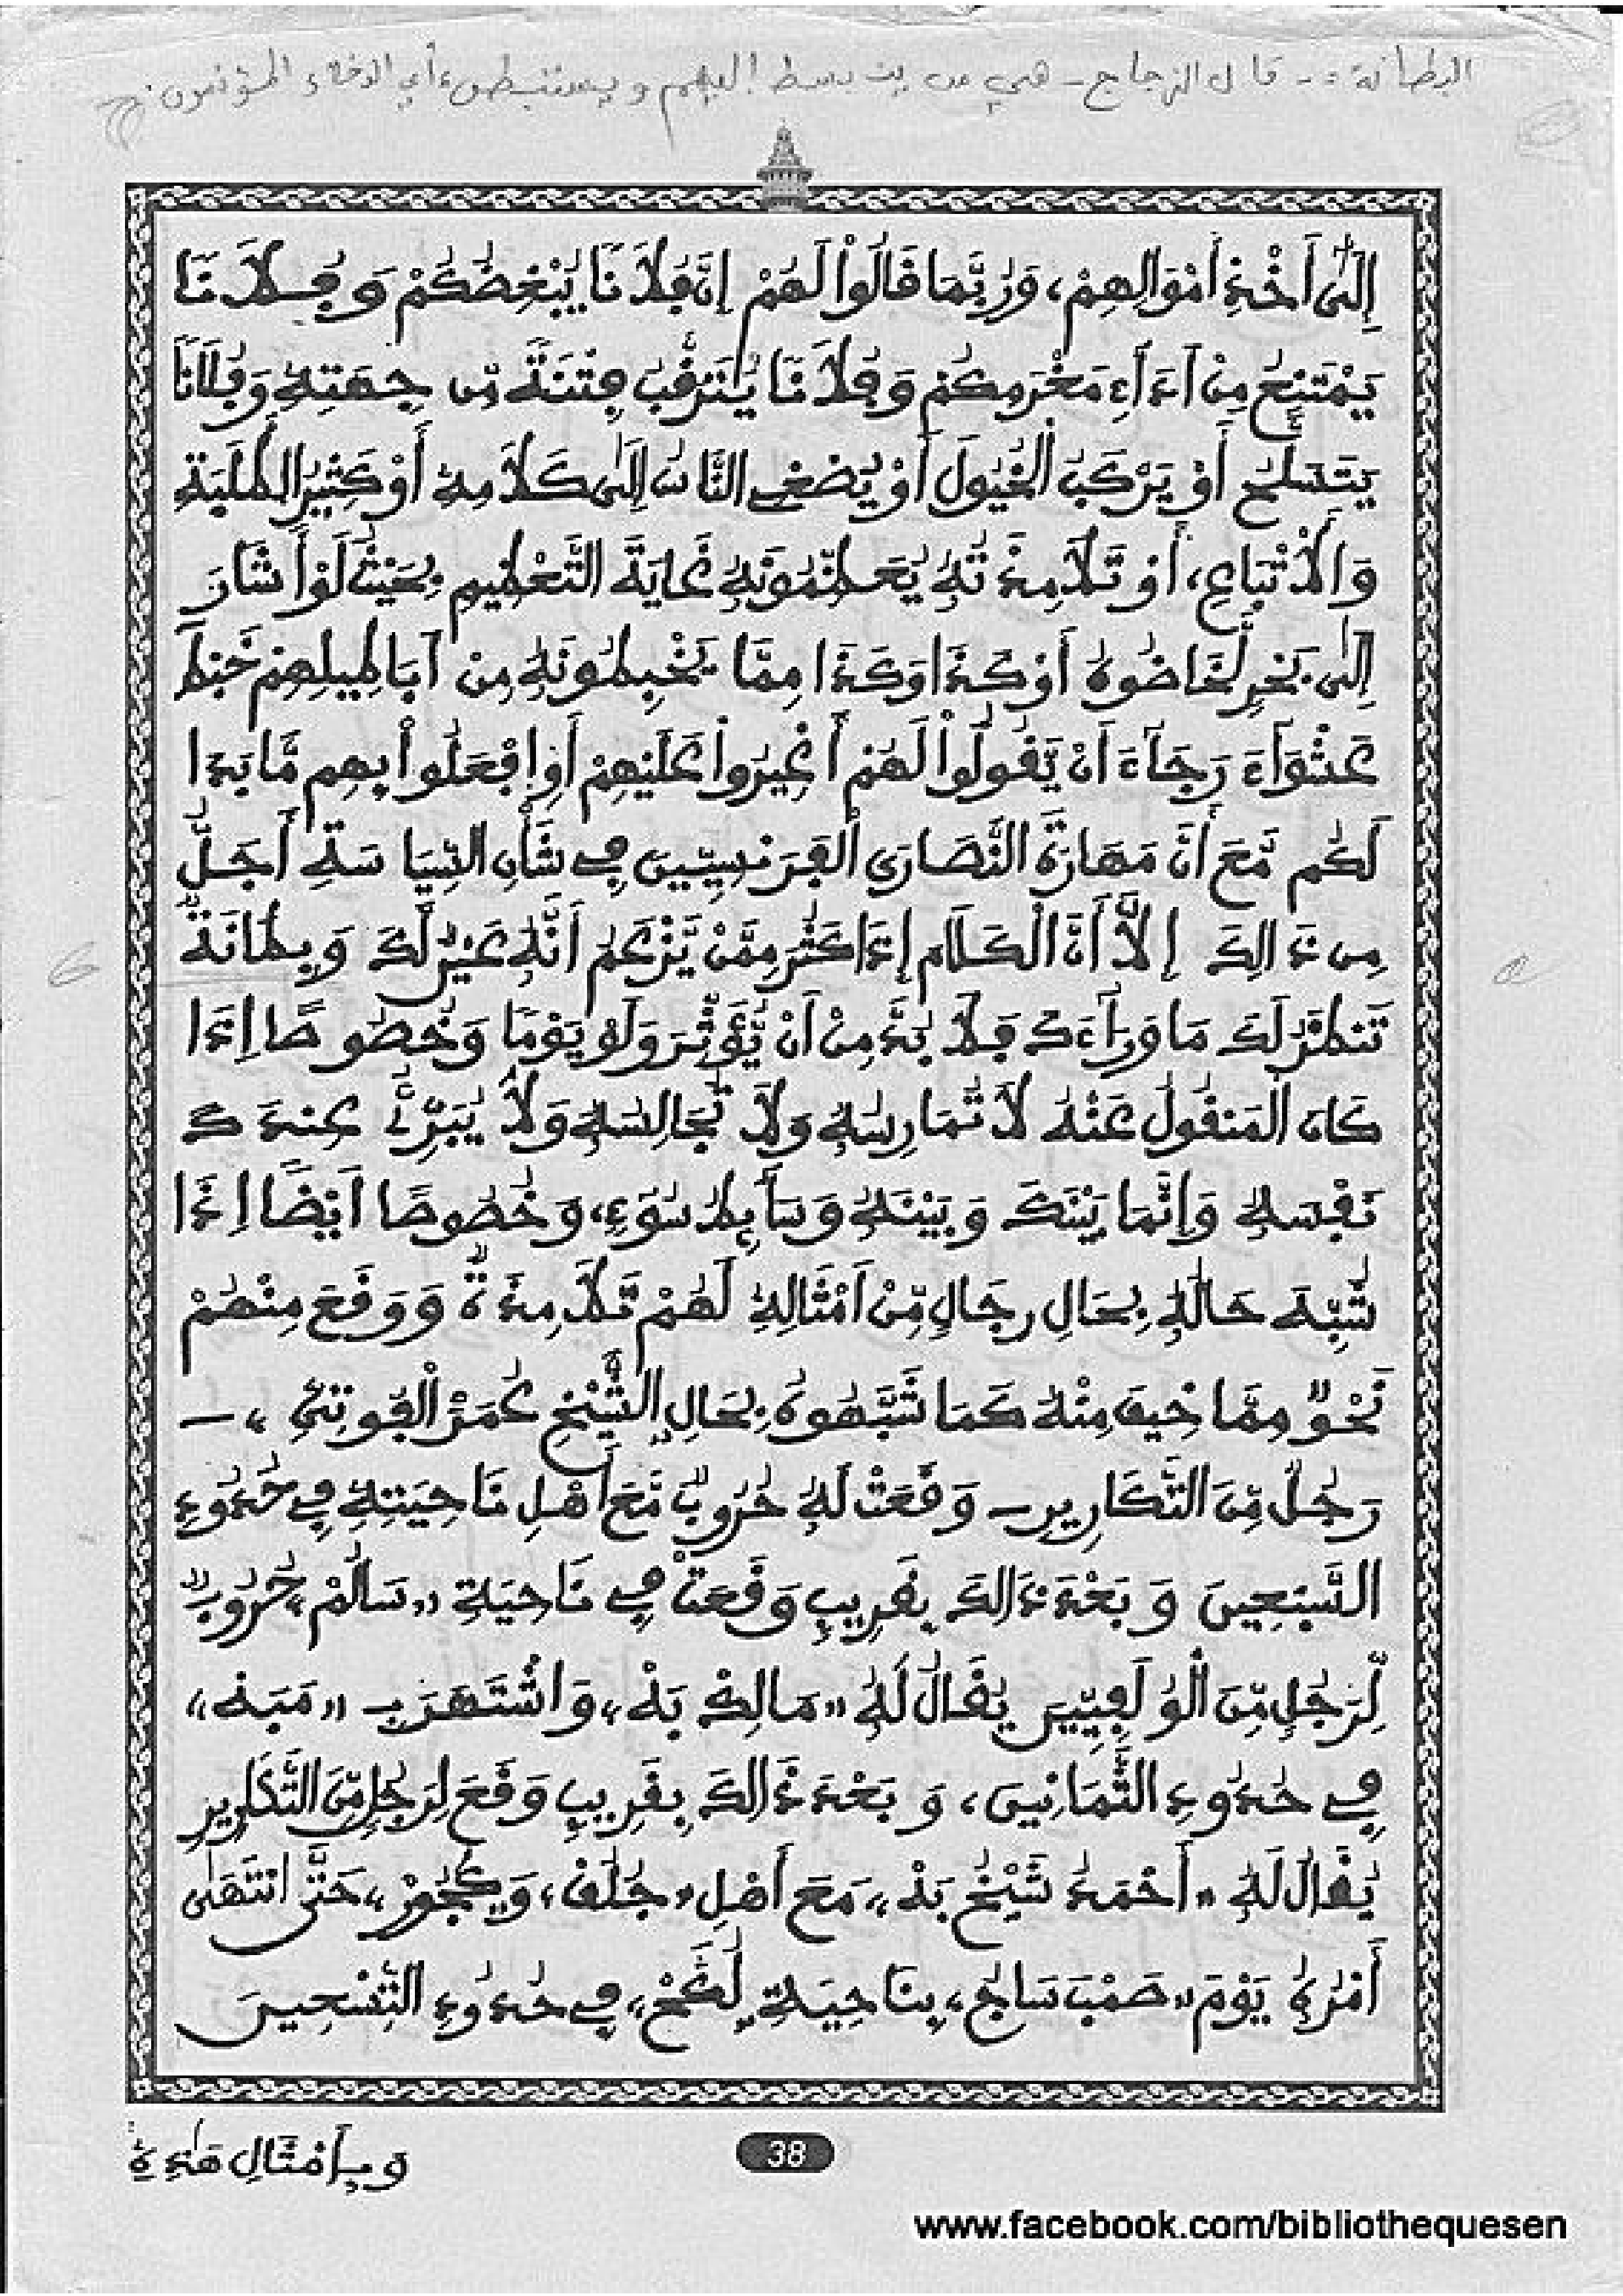 البطانة :- قال الزجاج - هي من ينبسط إليهم ويستبطن، أي الدخلاء المؤتمنون
إِلَىٰ أَخْذِ أَمْوَالِهِمْ، وَرُبَّمَا قَالُواْ لَهُمْ إِنَّ فُلَانًا يُبْغِضُكُمْ وَفُلَانًا
يَمْتَنِعُ مِنْ آدَآءِ مَغْرَمِكُمْ وَفُلَانًا يُتَرَقَّبُ فِتْنَةٌ مِّن جِهَتِهِ وَفُلَانًا
يَتَسَلَّحُ أَوْ يَرْكَبُ الْخُيُولَ أَوْ يُصْغِي النَّاسُ إِلَىٰ كَلَامِهِ أَوْ كَثِيرُ الطَّلَبَةِ
وَالْأَتْبَاعِ، أَوْ تَلَامِذَتُهُ يُعَظِّمُونَهُ غَايَةَ التَّعْظِيمِ بِحَيْثُ لَوْ أَشَارَ
إِلَىٰ بَحْرٍ لَخَاضُوهُ أَوْ كَذَا وَكَذَا مِمَّا يَخْبِطُونَهُ مِنْ آبَاطِيلِهِمْ خَبْطَ
عَشْوَآءَ رَجَآءَ أَنْ يَّقُولُواْ لَهُمْ أَغِيرُواْ عَلَيْهِمْ أَوِ افْعَلُواْ بِهِم مَّا بَدَا
لَكُم مَّعَ أَنَّ مَهَارَةَ النَّصَارَى الْفَرَنْسِيِّينَ فِي شَأْنِ السِّيَاسَةِ أَجَلُّ
مِن ذَالِكَ إِلَّا أَنَّ الْكَلَامَ إِذَا كَثُرَ مِمَّنْ يَّزْعُمُ أَنَّهُ عَيْنٌ لَّكَ وَبِطَانَةٌ
تَنظُرُ لَكَ مَا وَرَآءَكَ فَلَا بُدَّ مِنْ أَنْ يُّؤَثِّرَ وَلَوْ يَوْمًا وَخُصُوصًا إِذَا
كَانَ الْمَنقُولُ عَنْهُ لَا تُمَارِسُهُ وَلَا تُجَالِسُهُ وَلَا يُبَرِّئُ عِندَكَ
نَفْسَهُ وَإِنَّمَا بَيْنَكَ وَبَيْنَهُ وَسَآئِطُ سُوءٍ، وَخُصُوصًا أَيْضًا إِذَا
شُبِّهَ حَالُهُ بِحَالِ رِجَالٍ مِّنْ أَمْثَالِهِ لَهُمْ تَلَامِذَةٌ وَوَقَعَ مِنْهُمْ
نَحْوٌ مِمَّا خِيفَ مِنْهُ كَمَا شَبَّهُوهُ بِحَالِ الشَّيْخِ عُمَرَ الْفُوتِيِّ، -
رَجُلٌ مِّنَ التَّكَارِيرِ - وَقَعَتْ لَهُ حُرُوبٌ مَّعَ أَهْلِ نَاحِيَتِهِ فِي حُدُودِ
السَّبْعِينَ وَبَعْدَ ذَالِكَ بِقَرِيبٍ وَقَعَتْ فِي نَاحِيَةِ "سَالُمْ" حُرُوبٌ
لِّرَجُلٍ مِّنَ الْوُلَفِيِّينَ يُقَالُ لَهُ "مَالِكْ بَهْ"، وَاشْتَهَرَ بِـ "مَبَهْ"،
فِي حُدُودِ الثَّمَانِينَ، وَبَعْدَ ذَالِكَ بِقَرِيبٍ وَقَعَ لِرَجُلٍ مِّنَ التَّكَارِيرِ
يُقَالُ لَهُ "أَحْمَدُ شَيْخُ بَهْ"، مَعَ أَهْلِ "جُلُفْ، وَكَجُورْ"، حَتَّى انْتَهَىٰ
أَمْرُهُ يَوْمَ "صَمْبَ سَاجُ"، بِنَاحِيَةِ لُكُحْ"، فِي حُدُودِ التِّسْعِينَ
وَبِأَمْثَالِ هَٰذِهِ
38
www.facebook.com/bibliothequesen